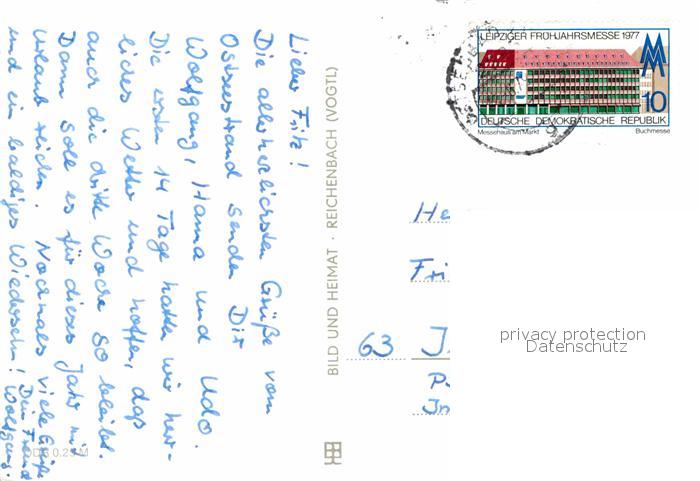 Lieber Fritz!
Die allerherzlichsten Grüße vom
Ostseestrand senden Dir
Wolfgang, Hanna und Udo.
Die ersten 14 Tage hatten wir herr-
liches Wetter und hoffen, daß
auch die dritte Woche so bleibt.
Dann soll es für dieses Jahr mit
Urlaub reichen. Nochmals viele Grüße
und ein baldiges Wiedersehn!
Dein Freund
Wolfgang.
0.25 M
BILD UND HEIMAT · REICHENBACH (VOGTL)
LEIPZIGER FRÜHJAHRSMESSE 1977
10
DEUTSCHE DEMOKRATISCHE REPUBLIK
Messehaus am Markt Buchmesse
He
Fri
63 J
privacy protection
Datenschutz